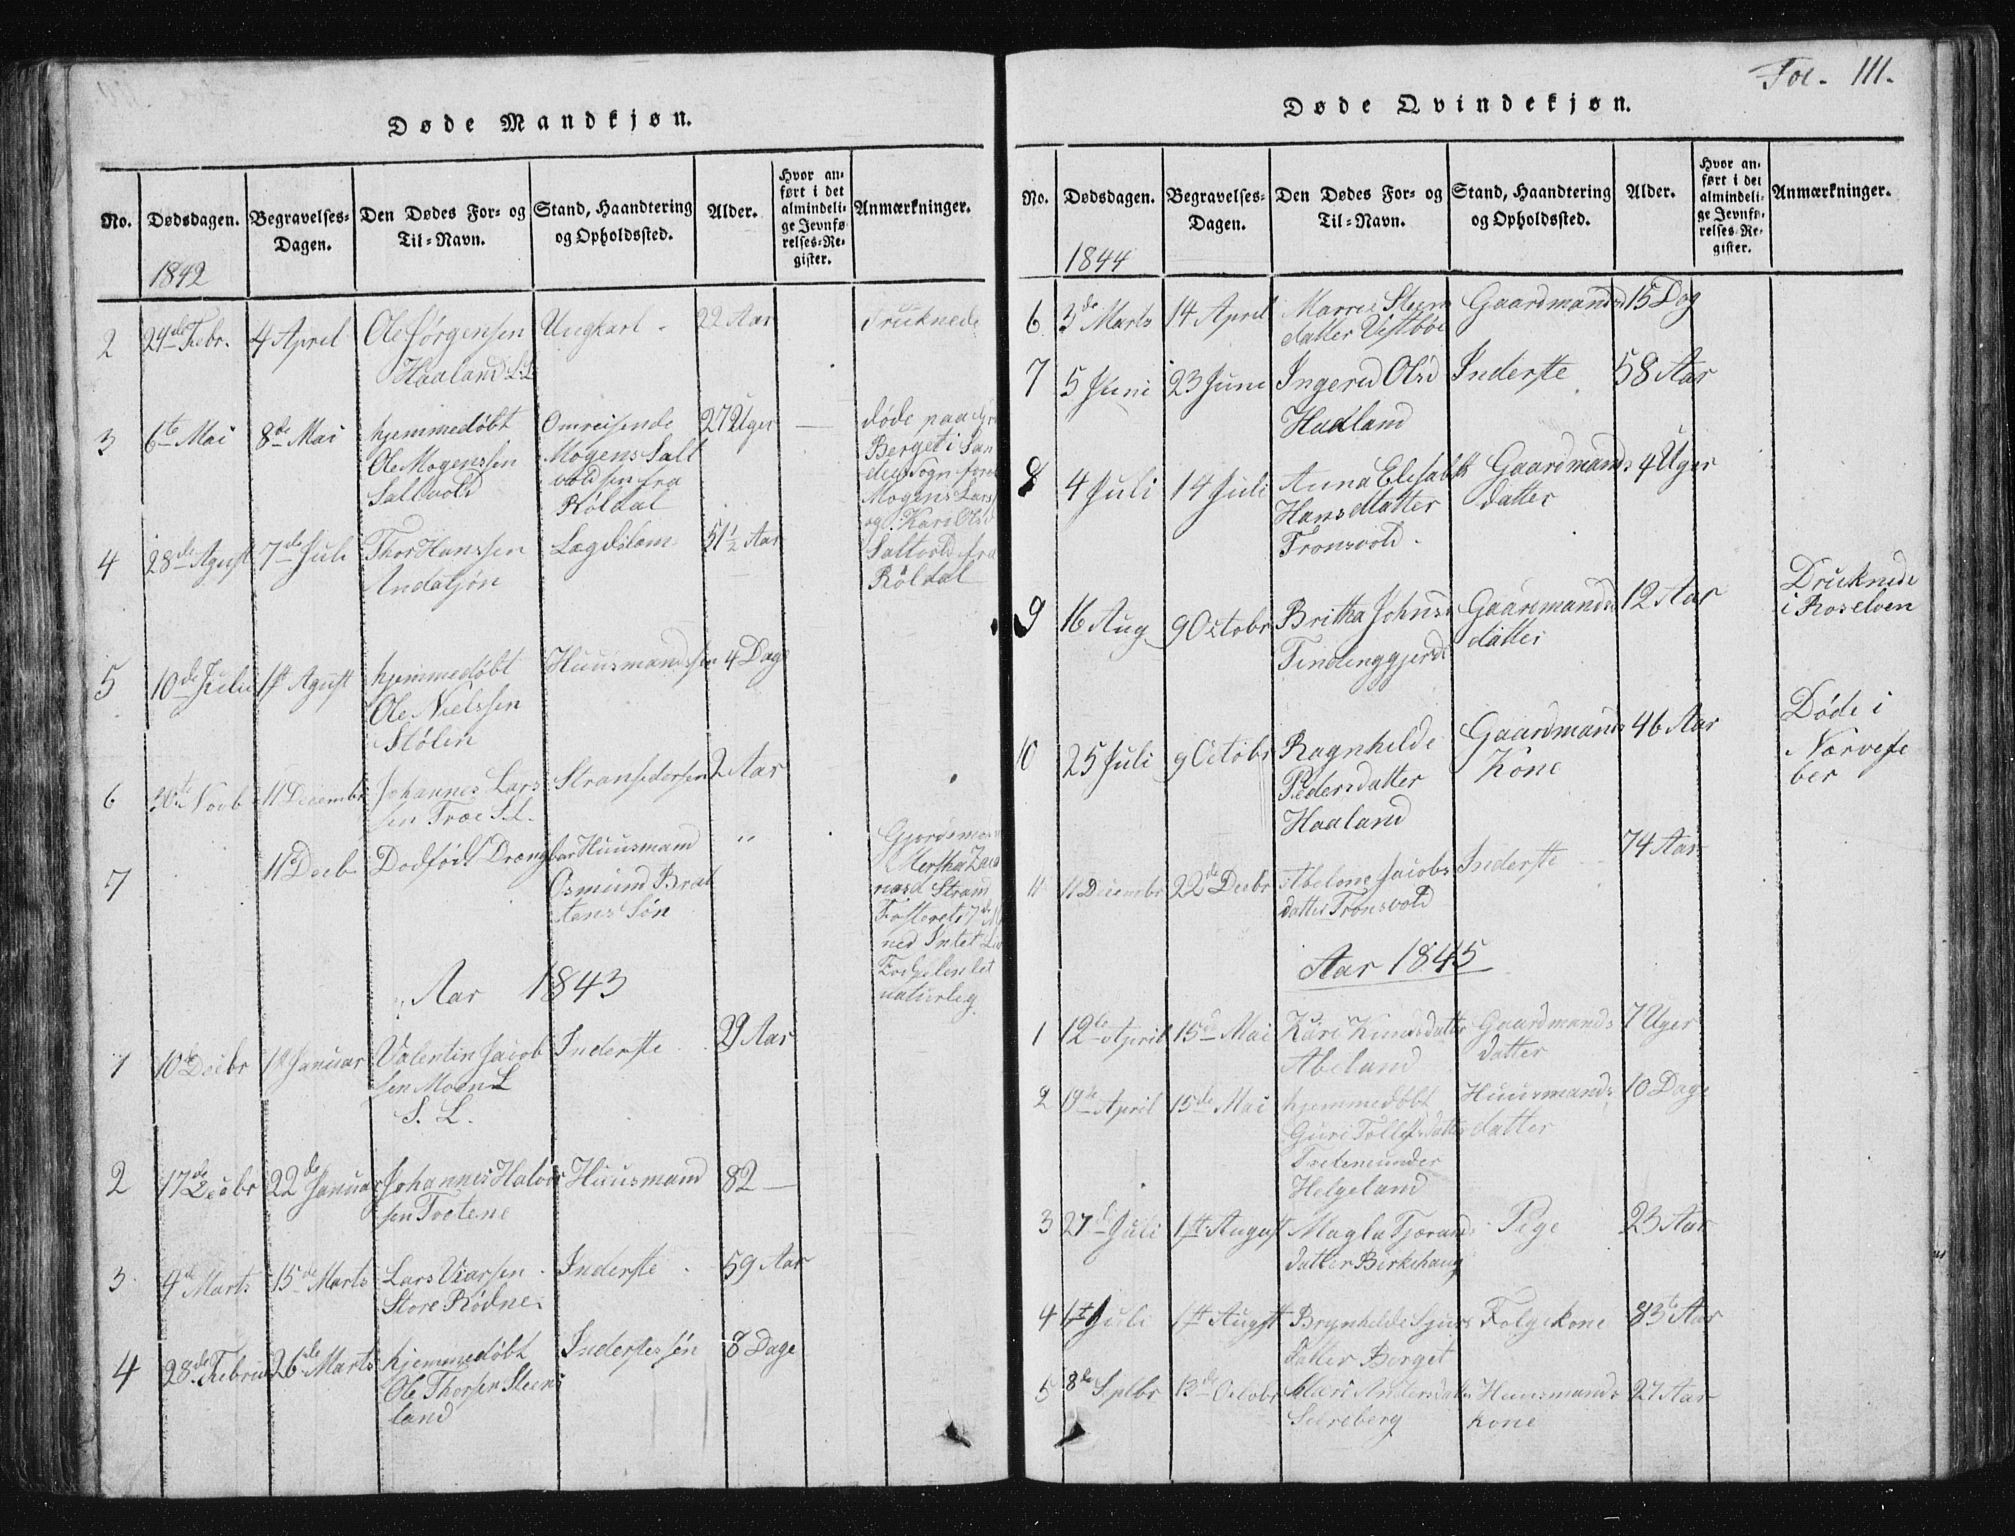 Døde Mandkjøn.
No. Dødsdagen. Begravelses-Dagen. Den Dødes For- og Til-Navn. Stand, Haandtering og Opholdssted. Alder. Hvor anført i det almindelige Jevnførelses-Register. Anmærkninger.
1842
2 24de Febr. 4 April Ole Jørgensen Ungkarl. 22 Aar Druknede
Haaland S.L.
3 6te Mai 8de Mai hjemmedøbt Omreisende 27 Uger døde paa
Ole Mogenssen Mogens Salt Berget i San
Saltvold voldsen fra Sogn
Röldal Mogens Lars
og Kari Olsd
Saltvold fra
Röldal
4 28de Agust 7de Juli Thor Hanssen Lægdslem 51 1/2 Aar
5 10de Julii 1ste Agust hjemmedøbt Huusmandssøn 4 Dage
Ole Nielssen
Stølen
6 30te Novb 11 Decembr Johannes Lars 2 Aar
sen Træ S.L.
7 11 Decb Dodfød Drengbar Huusmand "
Osmund Brat
tens Søn
Mertha
naturleg
Aar 1843
1 10de Decbr 1ste Januar Valentin Jacob Inderste 29 Aar
sen Moen
S. L.
2 17de Decbr 22de Januar Johannes Halvor Huusmand 82 —
sen Tvetene
3 4de Marts 15de Marts Lars Larsen Inderste 59 Aar
Store Rødne
4 28de Febru 26de Marts hjemmedøbt Inderstes Søn 8 Dage
Ole Thorsen Steens
land
Fol. 111.
Døde Qvindekjøn.
No. Dødsdagen. Begravelses-Dagen. Den Dødes For- og Til-Navn. Stand, Haandtering og Opholdssted. Alder. Hvor anført i det almindelige Jevnførelses-Register. Anmærkninger.
1844
6 3de Marts 14 April Steens Gaardmands 15 Dag
datter Vestbøe
7 5 Juni 23 Juni Ingerid Olsd Inderste 58 Aar
Hadland
8 4 Juli 14 Juli Anna Elisabeth Gaardmands 4 Uger
Hansdatter datter
Tronsvold.
9 16 Aug 9 Octobr Britha Johns Gaardmands 12 Aar Druknede
datter i Roselven
10 25 Juli 9 Octobr Ragnhilde Gaardmands 46 Aar Døde i
Pedersdatter Kone
Haaland
11 11 Decembr 22de Decbr Abelone Jacobs Inderste 74 Aar
datter Tronsvold
Aar 1845
1 12te April 15de Mai Kari Knudsdatter Gaardmands 7 Uger
Abeland datter
2 19de April 15de Mai hjemmedøbt Huusmands 10 Dage
Guri Tollefsdatter datter
Helgeland
3 27de Juli 1ste August Magla Pige 23 Aar
datter Birkehaug
4 1ste Juli 1ste Augst Brynhilde Sjurs Folgekone 83 Aar
datter Berget
5 8de Septbr 13de Octobr Mari Andersdatter Huusmands 27 Aar
kone